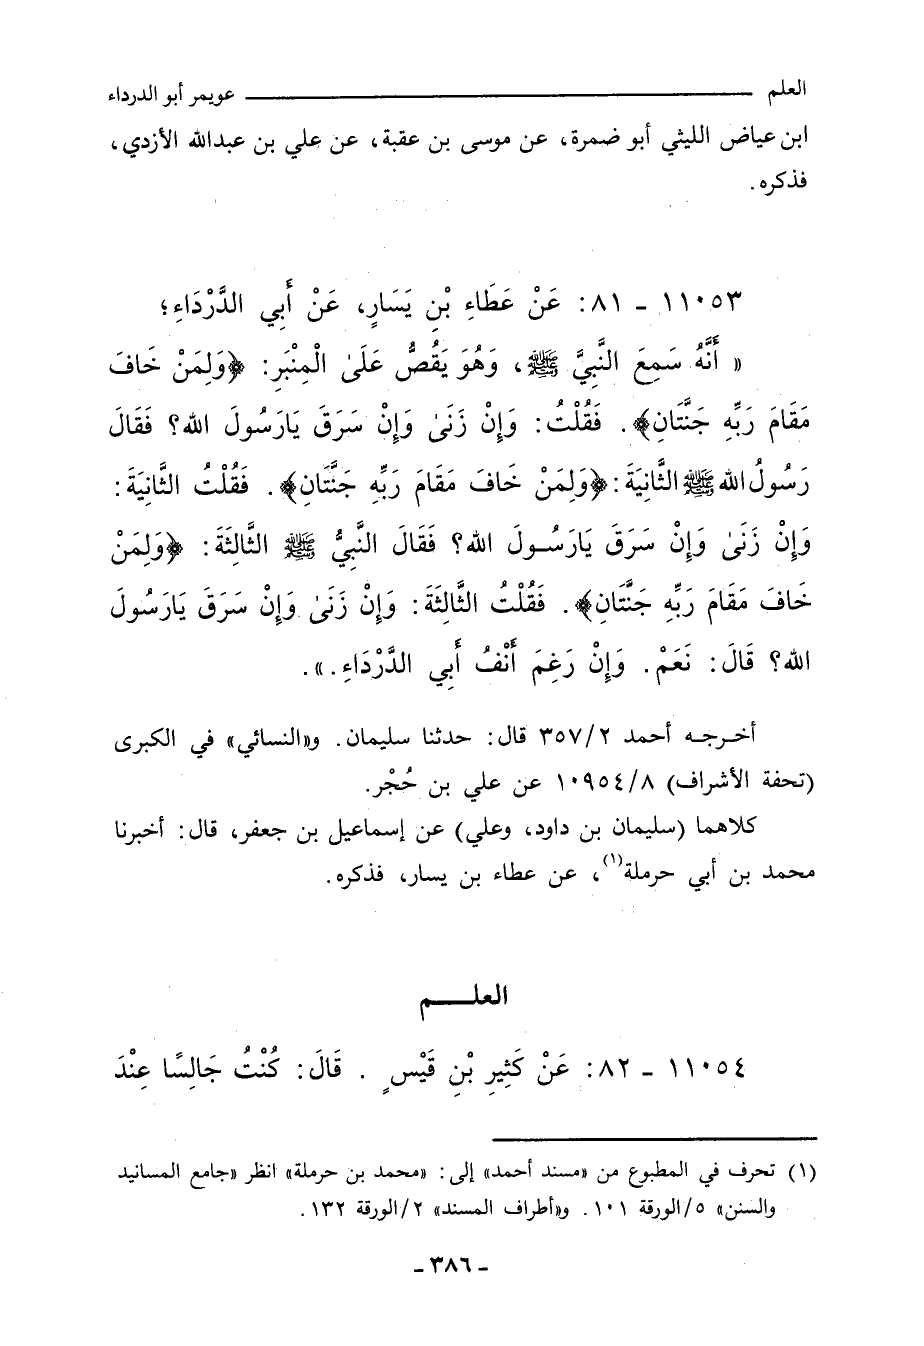 العلم ـــــــــــ عويمر أبو الدرداء
ابن عياض الليثي أبو ضمرة، عن موسى بن عقبة، عن علي بن عبدالله الأزدي،
فذكره.
١١٠٥٣ - ٨١: عَنْ عَطَاءِ بْنِ يَسَارٍ، عَنْ أَبِي الدَّرْدَاءِ؛
« أَنَّهُ سَمِعَ النَّبِيَّ ﷺ، وَهُوَ يَقُصُّ عَلَىٰ الْمِنْبَرِ: ﴿وَلِمَنْ خَافَ
مَقَامَ رَبِّهِ جَنَّتَانِ﴾. فَقُلْتُ: وَإِنْ زَنَىٰ وَإِنْ سَرَقَ يَارَسُولَ الله؟ فَقَالَ
رَسُولُ الله ﷺ الثَّانِيَةَ: ﴿وَلِمَنْ خَافَ مَقَامَ رَبِّهِ جَنَّتَانِ﴾. فَقُلْتُ الثَّانِيَةَ:
وَإِنْ زَنَىٰ وَإِنْ سَرَقَ يَارَسُولَ الله؟ فَقَالَ النَّبِيُّ ﷺ الثَّالِثَةَ: ﴿وَلِمَنْ
خَافَ مَقَامَ رَبِّهِ جَنَّتَانِ﴾. فَقُلْتُ الثَّالِثَةَ: وَإِنْ زَنَىٰ وَإِنْ سَرَقَ يَارَسُولَ
الله؟ قَالَ: نَعَمْ. وَإِنْ رَغِمَ أَنْفُ أَبِي الدَّرْدَاءِ.».
أخرجه أحمد ٣٥٧/٢ قال: حدثنا سليمان. و«النسائي» في الكبرى
(تحفة الأشراف) ١٠٩٥٤/٨ عن علي بن حُجْر.
كلاهما (سليمان بن داود، وعلي) عن إسماعيل بن جعفر، قال: أخبرنا
محمد بن أبي حرملة(١)، عن عطاء بن يسار، فذكره.
العلـــم
١١٠٥٤ - ٨٢: عَنْ كَثِيرِ بْنِ قَيْسٍ . قَالَ: كُنْتُ جَالِسًا عِنْدَ
(١) تحرف في المطبوع من «مسند أحمد» إلى: «محمد بن حرملة» انظر «جامع المسانيد
والسنن» ٥/الورقة ١٠١. و«أطراف المسند» ٢/الورقة ١٣٢.
- ٣٨٦ -